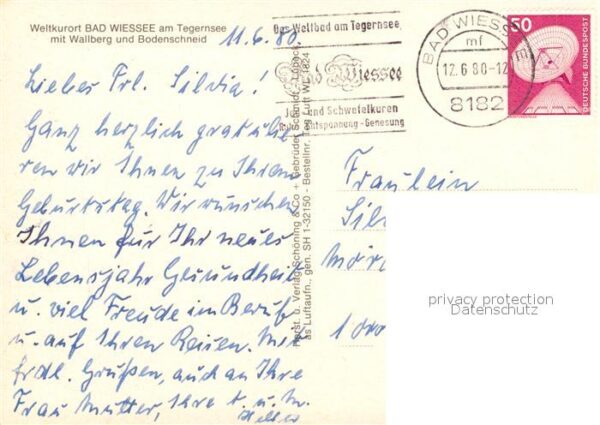 Weltkurort BAD WIESSEE am Tegernsee
mit Wallberg und Bodenschneid
11.6.80
Lieber Frl. Silvia!
Ganz herzlich gratulie-
ren wir Ihnen zu Ihrem
Geburtstag. Wir wünschen
Ihnen für Ihr neues
Lebensjahr Gesundheit
u. viel Freude im Beruf
u. auf Ihren Reisen. Mit
frdl. Grüßen, auch an Ihre
Frau Mutter, Ihre
Das Weltbad am Tegernsee
Bad Wiessee
Jod- und Schwefelkuren
Entspannung - Genesung
BAD WIESSEE
mf
12.6.80-12
8182
50
DEUTSCHE BUNDESPOST
Fräulein
Sil
1000
Horst. u. Verlag Schöning & Co + Gebrüder Schmidt, Lübeck
as Luftaufn., gen. SH 1-32150 - Bestellnr.
privacy protection
Datenschutz